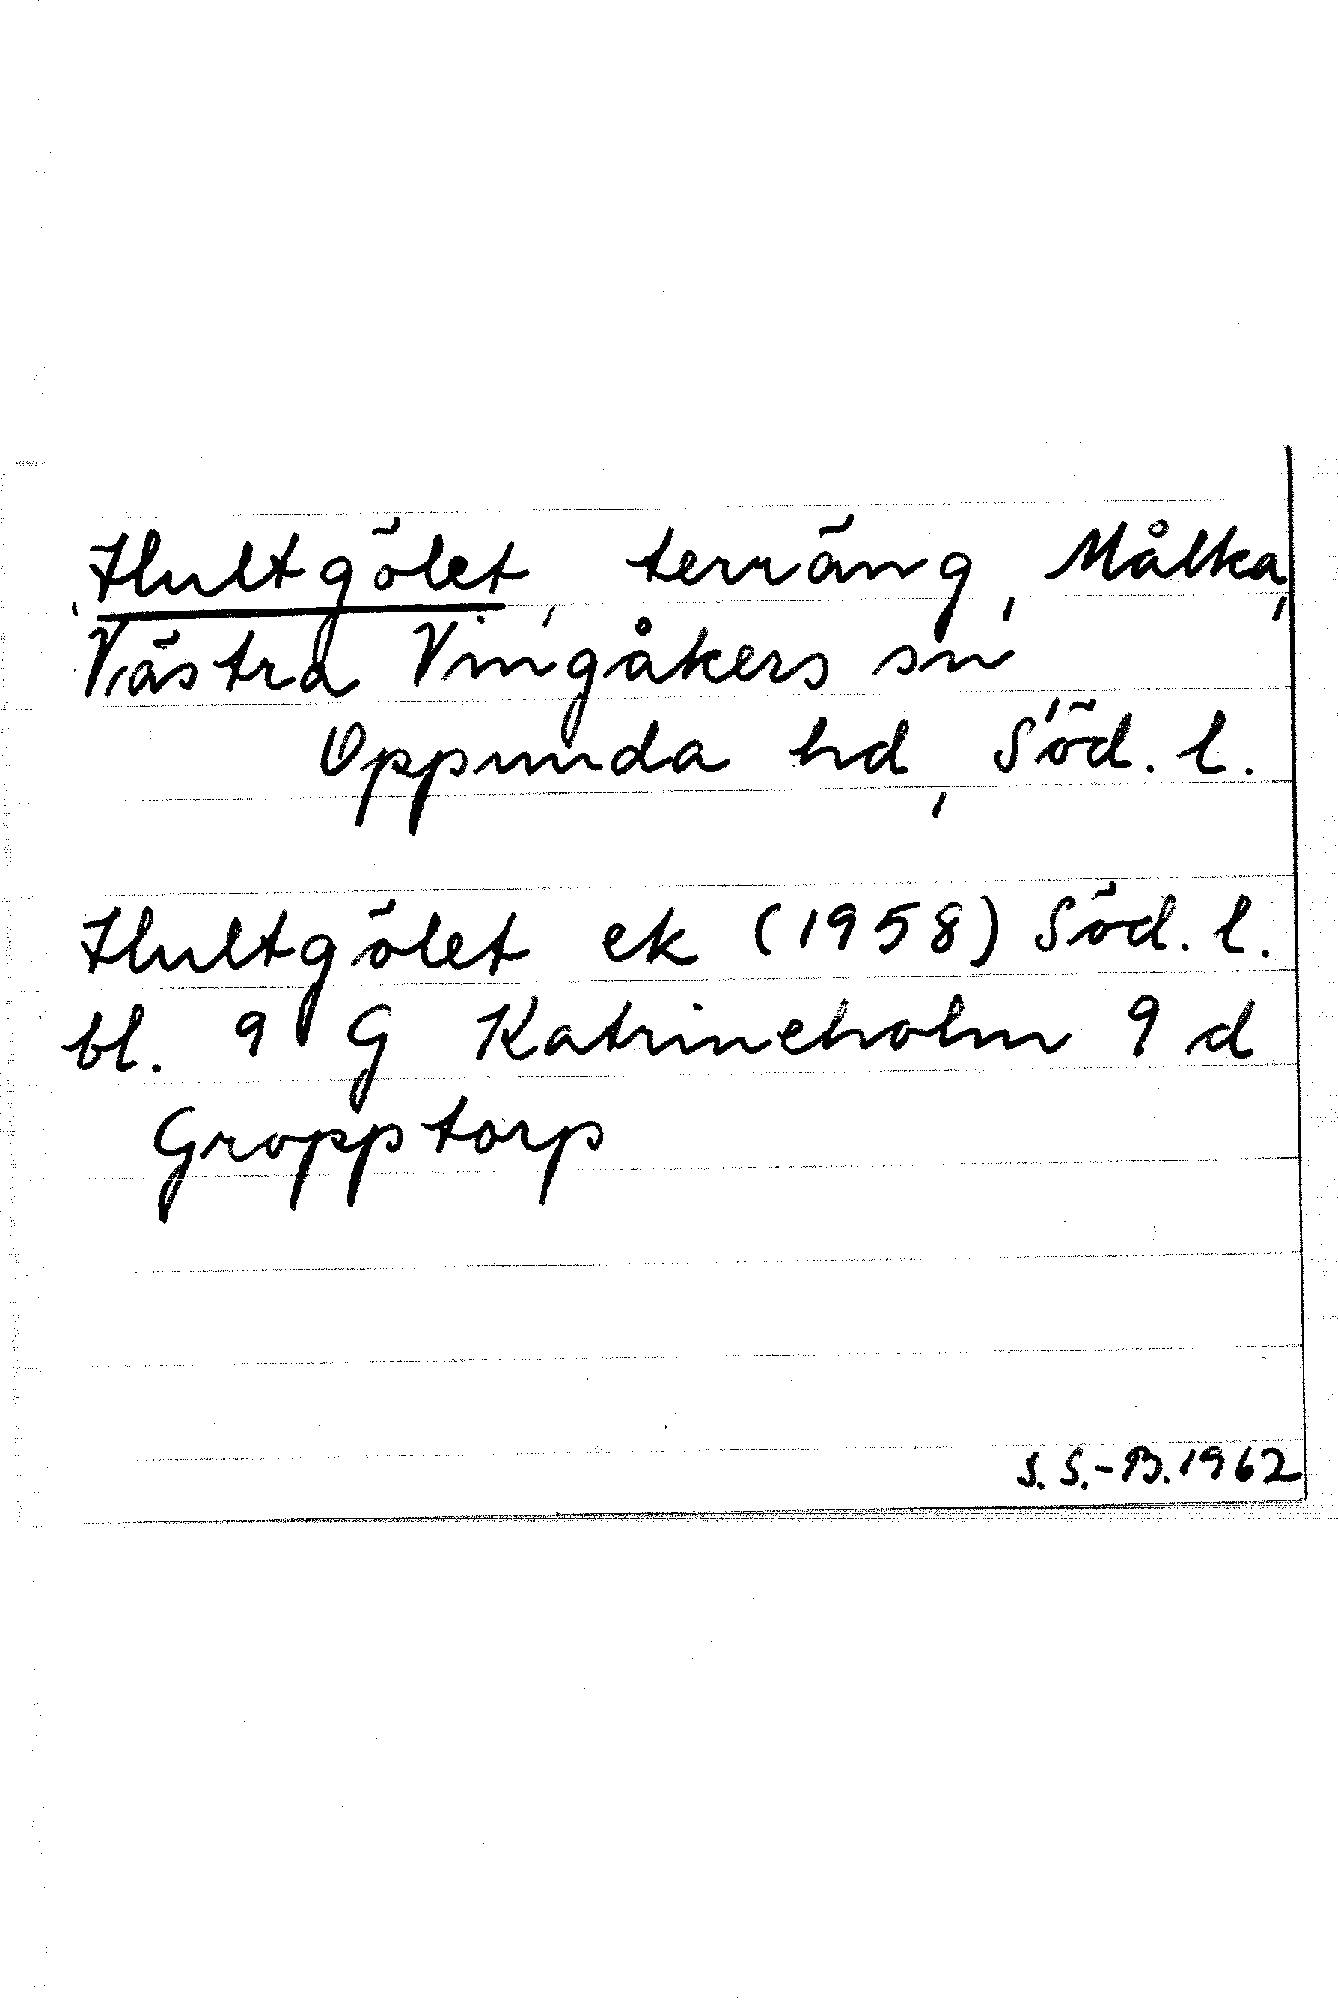 Hultgölet, terräng, Målka,
Västra Vingåkers sn
Oppunda hd, Söd. l.
Hultgölet ek (1958) Söd. l.
bl. 9 G Katrineholm 9 d
Gropptorp
S. S.-B. 1962